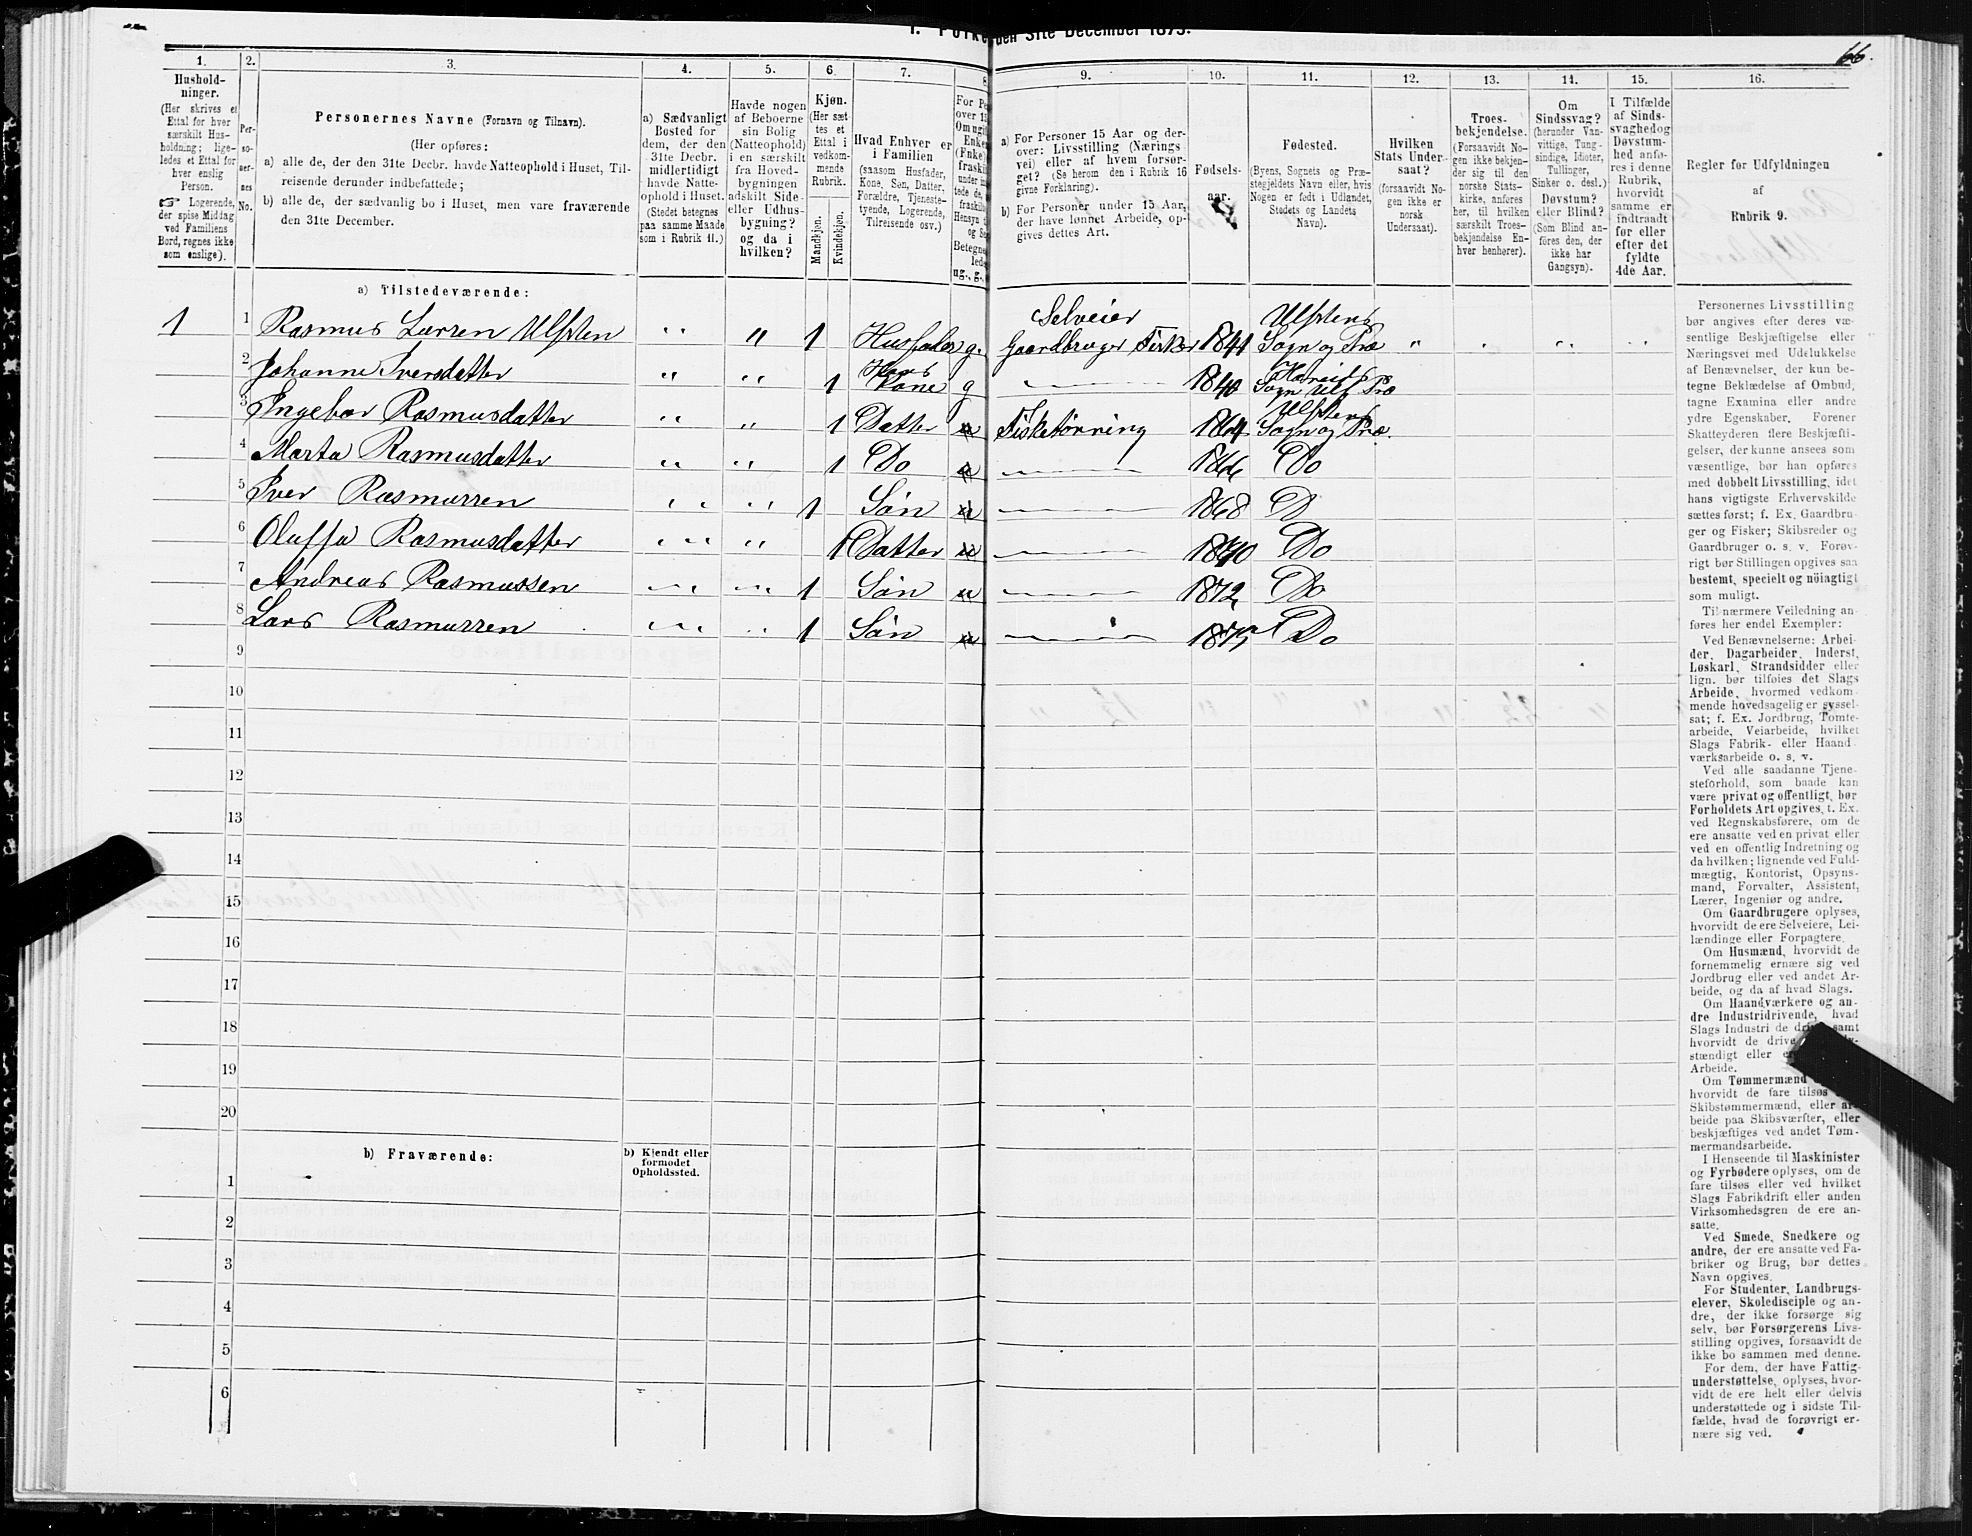 1. Folke den 31te December 1875.
66.
1. 2. 3. 4. 5. 6. 7. 8
9. 10. 11. 12. 13. 14. 15. 16.
Hushold-
ninger.
(Her skrives et
Ettal for hver
særskilt Hus-
holdning; lige-
ledes et Ettal for
hver enslig
Person.
Logerende,
der spise Middag
ved Familiens
Bord, regnes ikke
som enslige).
Per-
so-
ner-
nes
No.
Personernes Navne (Fornavn og Tilnavn).
(Her opføres:
a) alle de, der den 31te Decbr. havde Natteophold i Huset, Til-
reisende derunder indbefattede;
b) alle de, der sædvanlig bo i Huset, men vare fraværende
den 31te December.
a) Sædvanligt
Bosted for
dem, der den
31te Decbr.
midlertidigt
havde Natte-
ophold i Huset.
(Stedet betegnes
paa samme Maade
som i Rubrik 11.)
Havde nogen
af Beboerne
sin Bolig
(Natteophold)
i en særskilt
fra Hoved-
bygningen
adskilt Side-
eller Udhus-
bygning?
og da i
hvilken?
Kjøn.
(Her sæt-
tes et
Ettal i
vedkom-
mende
Rubrik.
Mandkjøn.
Kvindekjøn.
Hvad Enhver er
i Familien
(saasom Husfader,
Kone, Søn, Datter,
Forældre, Tjeneste-
tyende, Logerende,
Tilreisende osv.)
For Pe
over 15
Om ugift
Enke
(Fnke)
fraskil
ug., g.,
a) For Personer 15 Aar og der-
over: Livsstilling (Nærings
vei) eller af hvem forsør-
get? (Se herom den i Rubrik 16
givne Forklaring).
b) For Personer under 15 Aar,
der have lønnet Arbeide, op-
gives dettes Art.
Fødsels-
aar.
Fødested.
(Byens, Sognets og Præ-
stegjeldets Navn eller, hvis
Nogen er født i Udlandet,
Stedets og Landets
Navn).
Hvilken
Stats Under-
saat?
(forsaavidt No-
gen ikke er
norsk
Undersaat).
Troes-
bekjendelse.
(Forsaavidt No-
gen ikke bekjen-
der sig til den
norske Stats-
kirke, anføres
her, til hvilken
særskilt Troes-
bekjendelse En-
hver henhører).
Om
Sindssvag?
(herunder Van-
vittige, Tung-
sindige, Idioter,
Tullinger,
Sinker o. desl.)
Døvstum?
eller Blind?
(Som Blind an-
føres den, der
ikke har
Gangsyn).
I Tilfælde
af Sinds-
svaghed og
Døvstum-
hed anfø-
res i denne
Rubrik,
hvorvidt
samme er
indtraadt
før eller
efter det
fyldte
4de Aar.
Regler for Udfyldningen
af
Rubrik 9.
a) Tilstedeværende:
1 1 Rasmus Larsen Ulsten " " 1 Husfader g. Selveier Gaardbruger Fisker 1841 Ulstens Sogn og Præ " " " "
2 Johanne Iversdatter " " 1 Hans Kone g 1840 Hareids Sogn Ulst Præ
3 Ingebor Rasmusdatter " " 1 Datter u Fisketørring 1864 Ulstens Sogn og Præ.
4 Marta Rasmusdatter " " 1 Do u 1866 Do
5 Iver Rasmussen " " 1 Søn u 1868 D
6 Oluffa Rasmusdatter " " 1 Datter u 1870 Do
7 Andreas Rasmussen " " 1 Søn u 1872 Do
8 Lars Rasmussen " " 1 Søn u 1875 Do
9
10
11
12
13
14
15
16
17
18
19
20
b) Fraværende:
b) Kjendt eller
formodet
Opholdssted.
1
2
3
4
5
6
Personernes Livsstilling
bør angives efter deres væ-
sentlige Beskjæftigelse eller
Næringsvei med Udelukkelse
af Benævnelser, der kun be-
tegne Beklædelse af Ombud,
tagne Examina eller andre
ydre Egenskaber. Forener
Skatteyderen flere Beskjæfti-
gelser, der kunne ansees som
væsentlige, bør han opføres
med dobbelt Livsstilling, idet
hans vigtigste Erhvervskilde
sættes først; f. Ex. Gaardbru-
ger og Fisker; Skibsreder og
Gaardbruger o. s. v. Forøv-
rigt bør Stillingen opgives saa
bestemt, specielt og nöiagtigt
som muligt.
Til nærmere Veiledning an-
føres her endel Exempler:
Ved Benævnelserne: Arbei-
der, Dagarbeider, Inderst,
Løskarl, Strandsidder eller
lign. bør tilføies det Slags
Arbeide, hvormed vedkom-
mende hovedsagelig er syssel-
sat; f. Ex. Jordbrug, Tomte-
arbeide, Veiarbeide, hvilket
Slags Fabrik- eller Haand-
værksarbeide o. s. v.
Ved alle saadanne Tjene-
steforhold, som baade kan
være privat og offentligt, bør
Forholdets Art opgives, t. Ex.
ved Regnskabsførere, om de
ere ansatte ved en privat eller
ved en offentlig Indretning og
da hvilken; lignende ved Fuld-
mægtig, Kontorist, Opsyns-
mand, Forvalter, Assistent,
Lærer, Ingeniør og andre.
Om Gaardbrugere oplyses,
hvorvidt de ere Selveiere, Lei-
lændinge eller Forpagtere.
Om Husmænd, hvorvidt de
fornemmelig ernære sig ved
Jordbrug eller ved andet Ar-
beide, og da af hvad Slags.
Om Haandværkere og an-
dre Industridrivende, hvad
Slags Industri de drive samt
hvorvidt de drive
stændigt eller
Arbeide.
Om Tømmermænd
hvorvidt de fare tilsøs
Skibstømmermænd, eller ar-
beide paa Skibsværfter, eller
beskjæftiges ved andet Tøm-
mermandsarbeide.
I Henseende til Maskinister
og Fyrbødere oplyses, om de
fare tilsøs eller ved hvilket
Slags Fabrikdrift eller anden
Virksomhedsgren de ere an-
satte.
Ved Smede, Snedkere og
andre, der ere ansatte ved Fa-
briker og Brug, bør dettes
Navn opgives.
For Studenter, Landbrugs-
elever, Skoledisciple og an-
dre, der ikke forsørge sig
selv, bør Forsørgerens Livs-
stilling opgives, forsaavidt de
ikke bo sammen med denne.
For dem, der have Fattig-
understøttelse, oplyses, hvor-
vidt de ere helt eller delvis
understøttede og i sidste Til-
fælde, hvad de forøvrigt er-
nære sig ved.